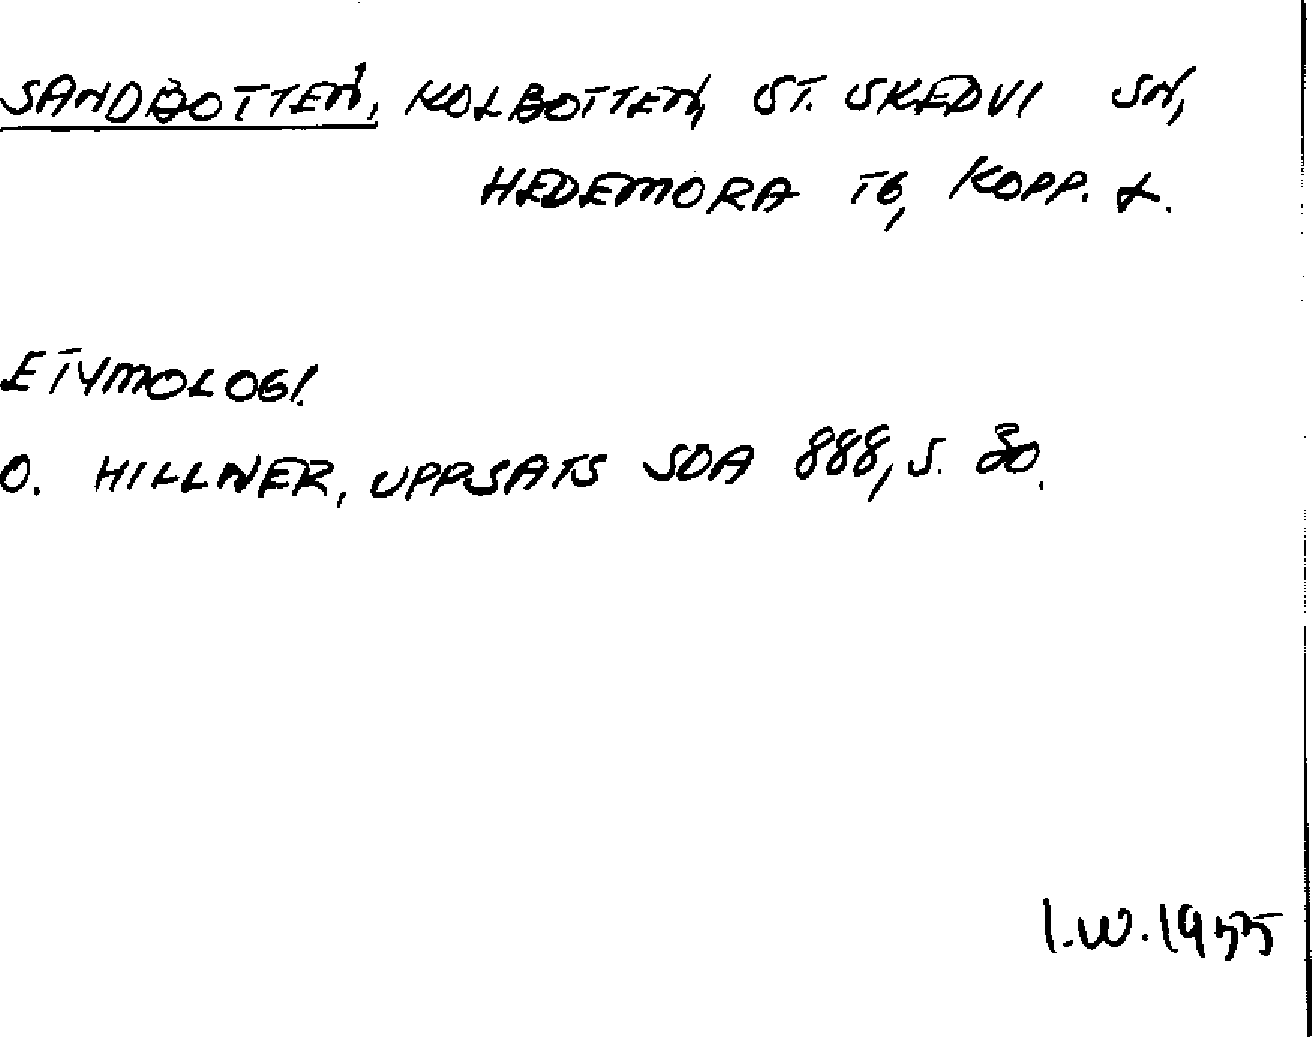 SANDBOTTEN, KOLBOTTEN, ST. SKEDVI SN,
HEDEMORA TG, KOPP. L.
ETYMOLOGI.
O. HILLNER, UPPSATS SOA 888, S. 30.
I.W. 1955